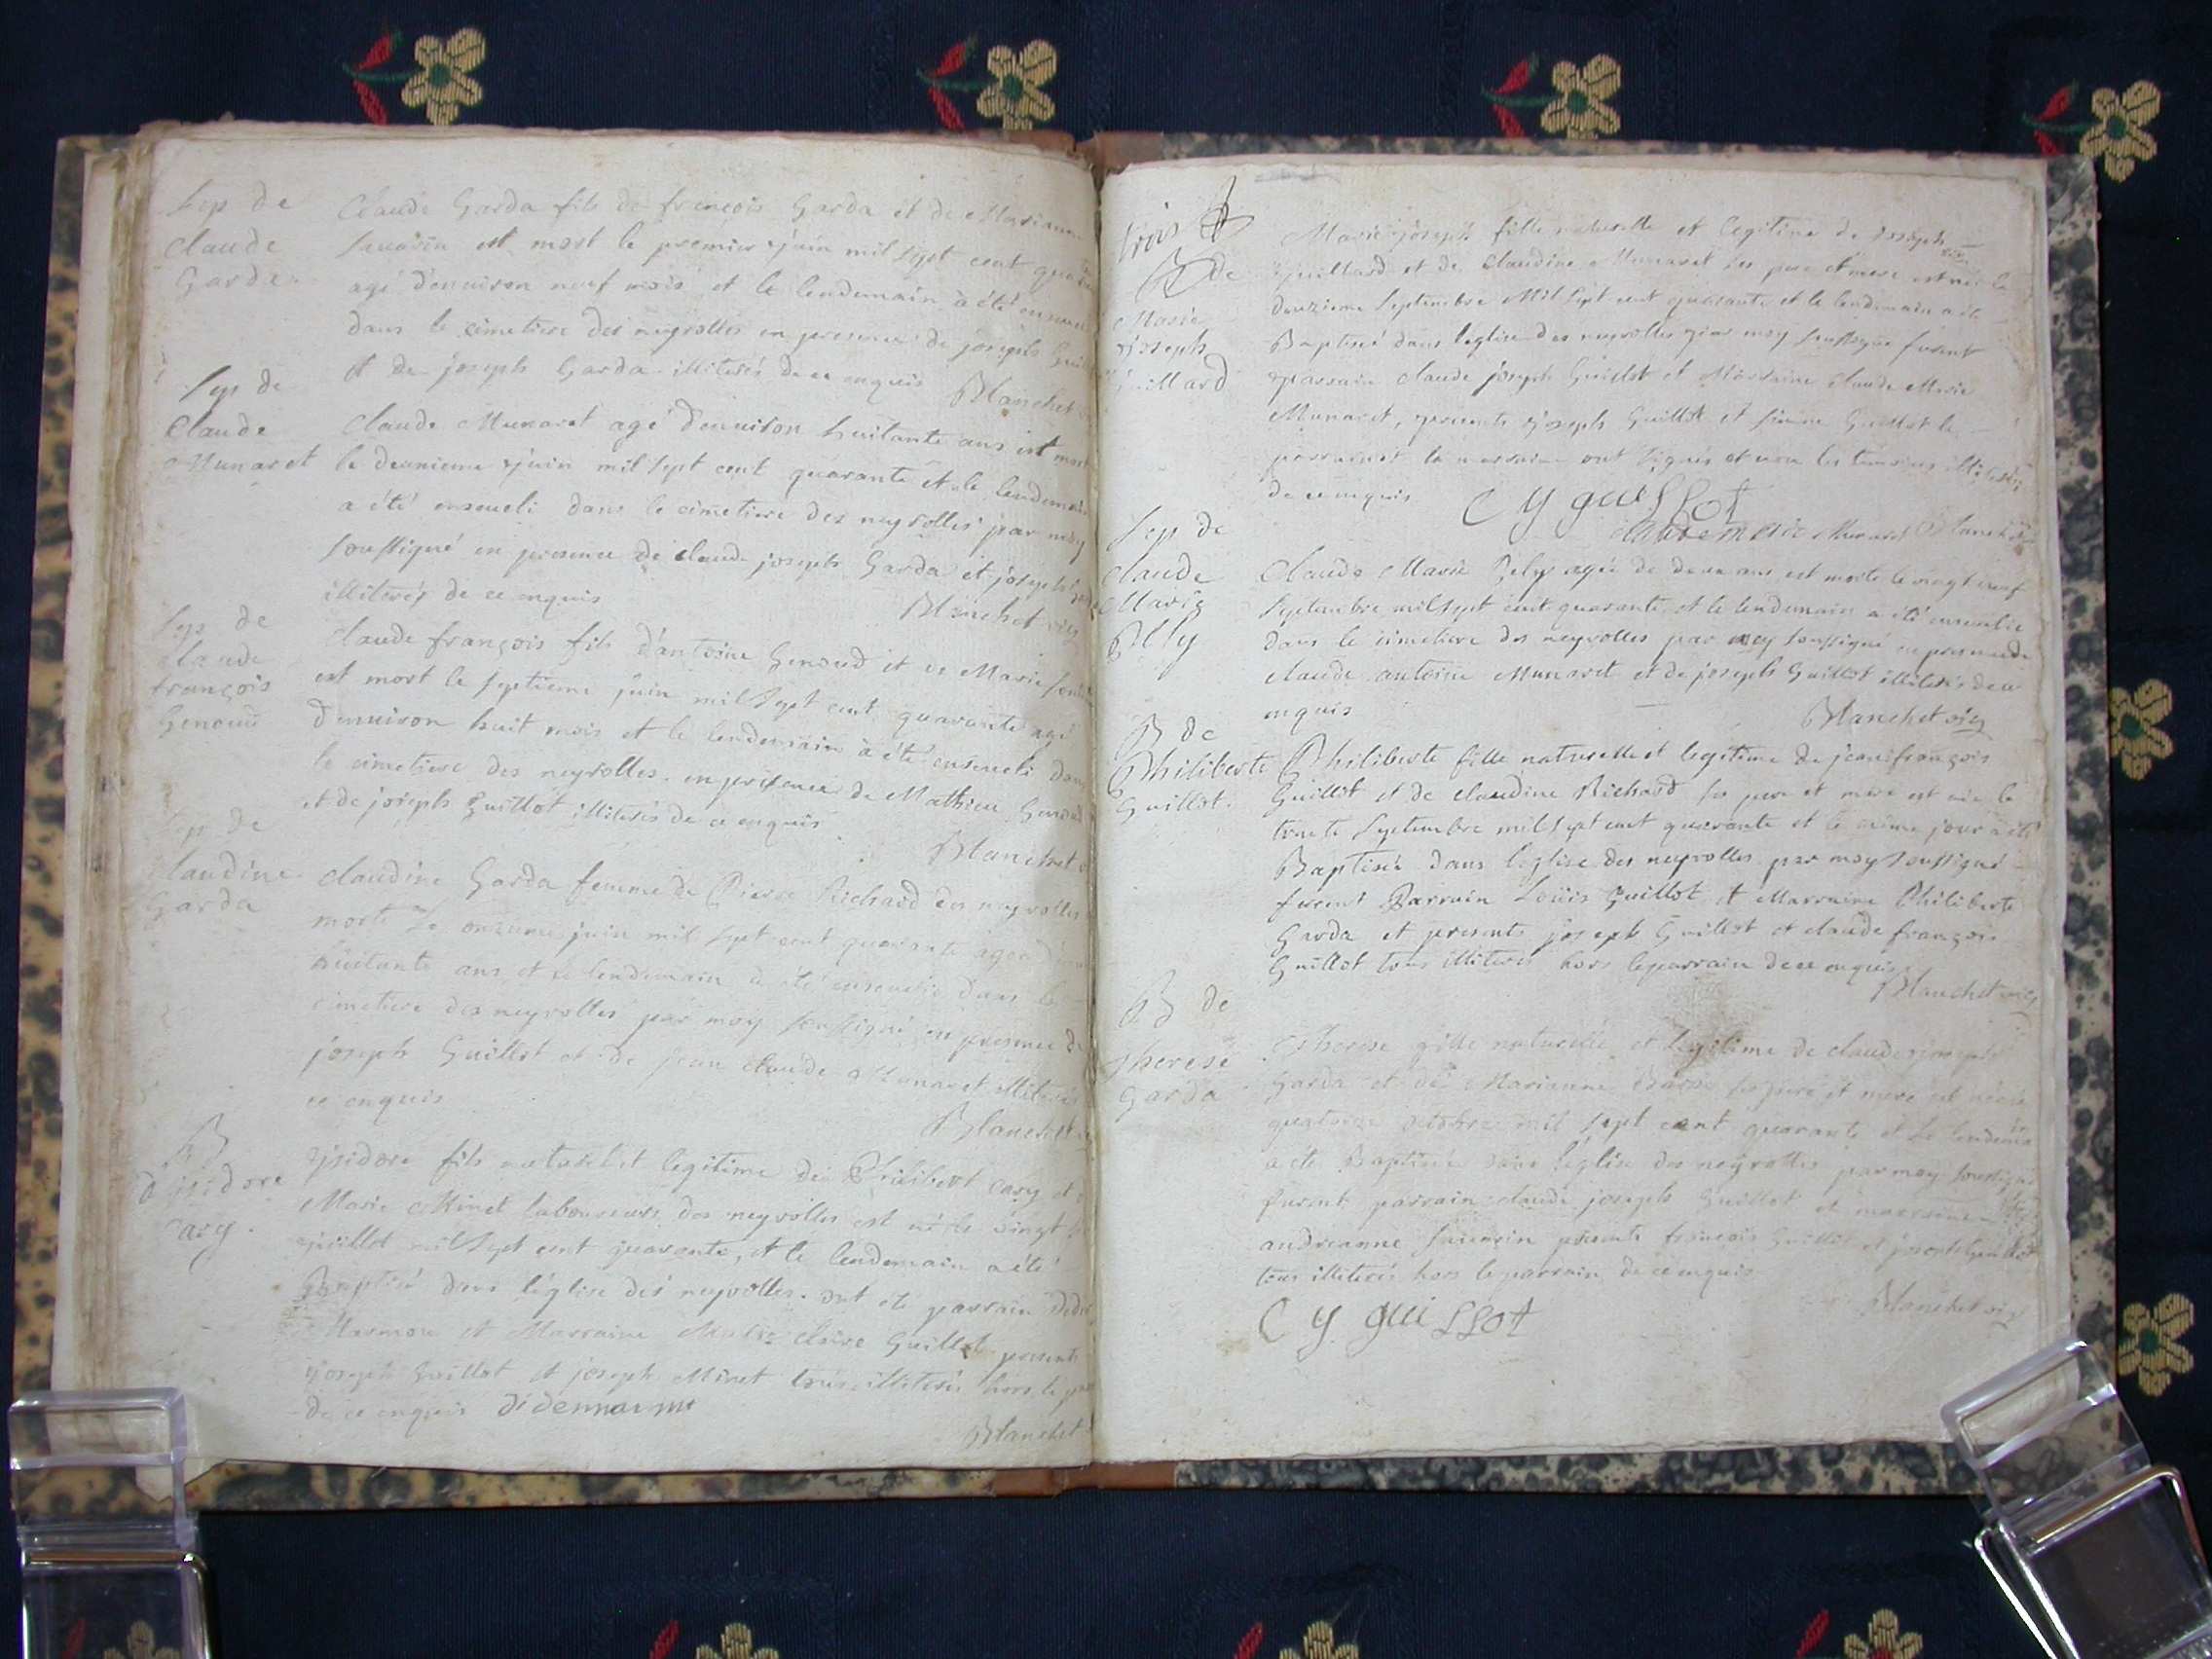 Sep de
Claude
Garda
Claude Garda fils de françois Garda et de Marianne
Savarin est mort le premier juin mil sept cent
agé d'enuiron neuf mois et le lendemain à été
dans le cimetiere des neyrolles en presence de joseph
et de joseph Garda illiterés de ce enquis
Blanchet
Sep de
Claude
Munaret
Claude Munaret agé d'enuiron huitante ans est mort
le deunieme juin mil sept cent quarante et le lendemain
a été enseueli dans le cimetiere des neyrolles par moy
soussigné en presence de claude joseph Garda et joseph
illiterés de ce enquis
Blanchet vic
Sep de
claude
françois
Genoud
claude françois fils d'antoine Genoud et de Marie
est mort le septieme juin mil sept cent quarante agé
d'enuiron huit mois et le lendemain à été enseueli dans
le cimetiere des neyrolles en presence de Mathieu Genoud
et de joseph Guillot illiterés de ce enquis
Blanchet
Sep de
Claudine
Garda
claudine Garda femme de Pierre Richard des neyrolles
morte le onzieme juin mil sept cent quarante agée
huitante ans et le lendemain a été enseuelie dans le
cimetiere des neyrolles par moy soussigné en presence de
joseph Guillot et de jean claude Munaret illiterés
ce enquis
Blanchet
B
d'ysidore
Cary
ysidore fils naturel et legitime de Philibert cary et
Marie Minet laboureurs des neyrolles est né le vingt
juillet mil sept cent quarante, et le lendemain a été
Baptisé dans l'église des neyrolles. ont été parrain
Marmon et Marraine Marie claire Guillot presents
joseph Guillot et joseph Minet tous illiterés hors le
de ce enquis
Blanchet
trois
B de
Marie
joseph
Guillard
Marie joseph fille naturelle et legitime de joseph
Guillard et de Claudine Munaret ses pere et mere est née le
douzieme septembre mil sept cent quarante et le lendemain a été
Baptisé dans l'eglise des neyrolles par moy soussigné furent
parrain claude joseph Guillot et Marraine claude Marie
Munaret, presents joseph Guillot et Guillot le
parrain et la marraine ont signés et non les temoins illiterés
de ce enquis
Cy guillot
claude marie Munaret Blanchet vic
Sep de
Claude
Marie
Bely
Claude Marie Bely agée de deux ans est morte le vingt neuf
septembre mil sept cent quarante et le lendemain a été enseuelie
dans le cimetiere des neyrolles par moy soussigné en presence de
claude antoine Munaret et de joseph Guillot illiterés de ce
enquis
Blanchet vic
B de
Philiberte
Guillot.
Philiberte fille naturelle et legitime de jean françois
Guillot et de claudine Richard ses pere et mere est née le
trente septembre mil sept cent quarante et le même jour a été
Baptisée dans l'eglise des neyrolles par moy soussigné
furent Parrain Louis Guillot et Marraine Philiberte
Garda et presents joseph Guillot et claude françois
Guillot tous illiterés hors le parrain de ce enquis
Blanchet vic
B de
therese
Garda
Therese fille naturelle et legitime de claude joseph
Garda et de Marianne ses pere et mere est née le
octobre mil sept cent quarante et le lendemain
a été Baptisée dans l'eglise des neyrolles par moy soussigné
furent parrain claude joseph Guillot et marraine
andreanne Savarin presents françois Guillot et joseph Guillot
tous illiterés hors le parrain de ce enquis
Blanchet vic
Cy guillot